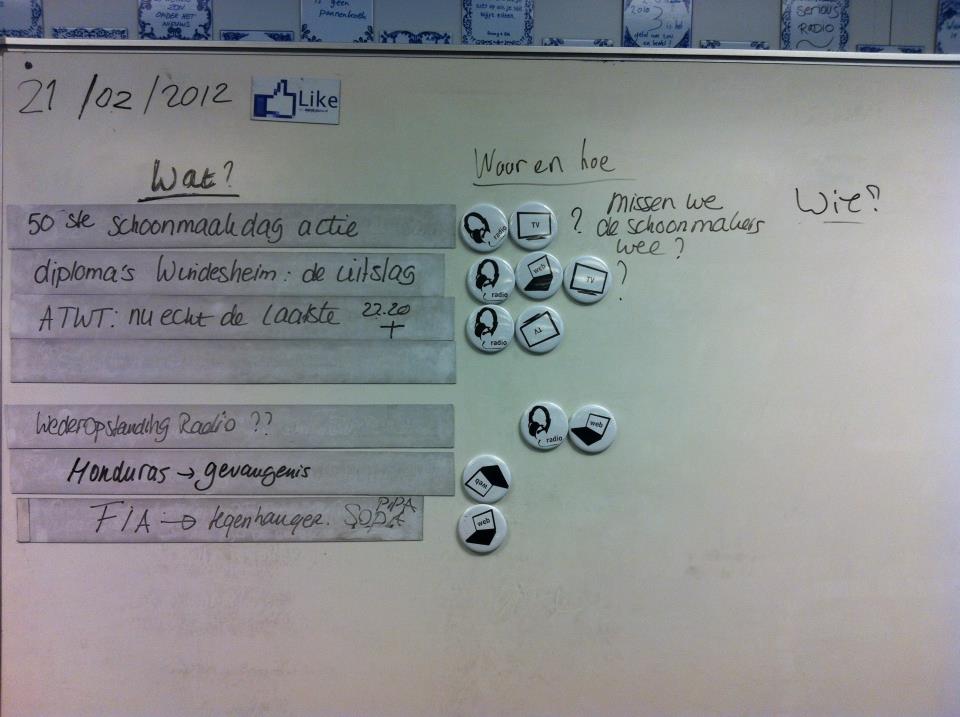 ZON
ONDER HET
NIEUWS
is geen
pannenkoek
2010
SERIOUS
RADIO
21 /02 /2012
Like
Wat?
Waar en hoe
Wie?
50 ste schoonmaakdag actie
radio
TV
? missen we
de schoonmakers
wee?
diploma's Windesheim: de uitslag
radio
web
TV
?
ATWT: nu echt de laatste 22.20
+
radio
TV
Wederopstanding Radio ??
radio
web
Honduras → gevangenis
web
FIA → tegenhanger. SOPA
PIPA
web